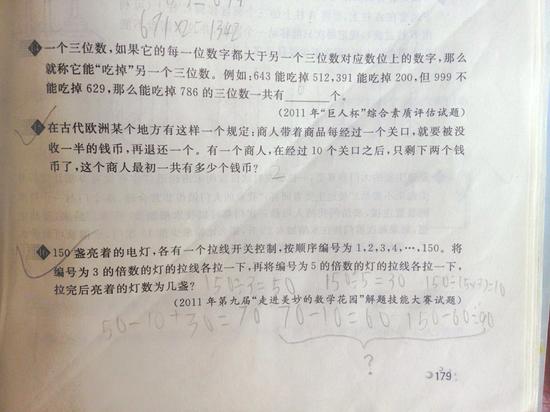 691×2=1342
一个三位数,如果它的每一位数字都大于另一个三位数对应数位上的数字,那么
就称它能“吃掉”另一个三位数。例如:643能吃掉512,391能吃掉200,但999不
能吃掉629,那么能吃掉786的三位数一共有______个。
(2011年“巨人杯”综合素质评估试题)
在古代欧洲某个地方有这样一个规定:商人带着商品每经过一个关口,就要被没
收一半的钱币,再退还一个。有一个商人,在经过10个关口之后,只剩下两个钱
币了,这个商人最初一共有多少个钱币? 2
150盏亮着的电灯,各有一个拉线开关控制,按顺序编号为1,2,3,4,…,150。将
编号为3的倍数的灯的拉线各拉一下,再将编号为5的倍数的灯的拉线各拉一下,
拉完后亮着的灯数为几盏? 150÷3=50 150÷5=30 150÷(5×3)=10
(2011年第九届“走进美妙的数学花园”解题技能大赛试题)
50-10+30=70 70-10=60 150-60=90
?
179